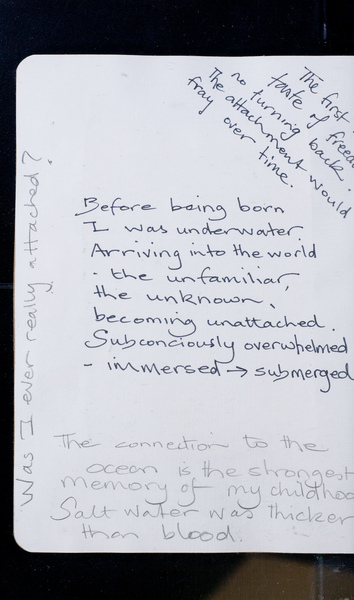 The first
taste of freed
no turning back.
The attachment would
fray over time.
Was I ever really attached?
Before being born
I was underwater.
Arriving into the world
- the unfamiliar,
the unknown,
becoming unattached.
Subconciously overwhelmed
- immersed → submerged
The connection to the
ocean is the strongest
memory of my childhoo
Salt water was thicker
than blood.